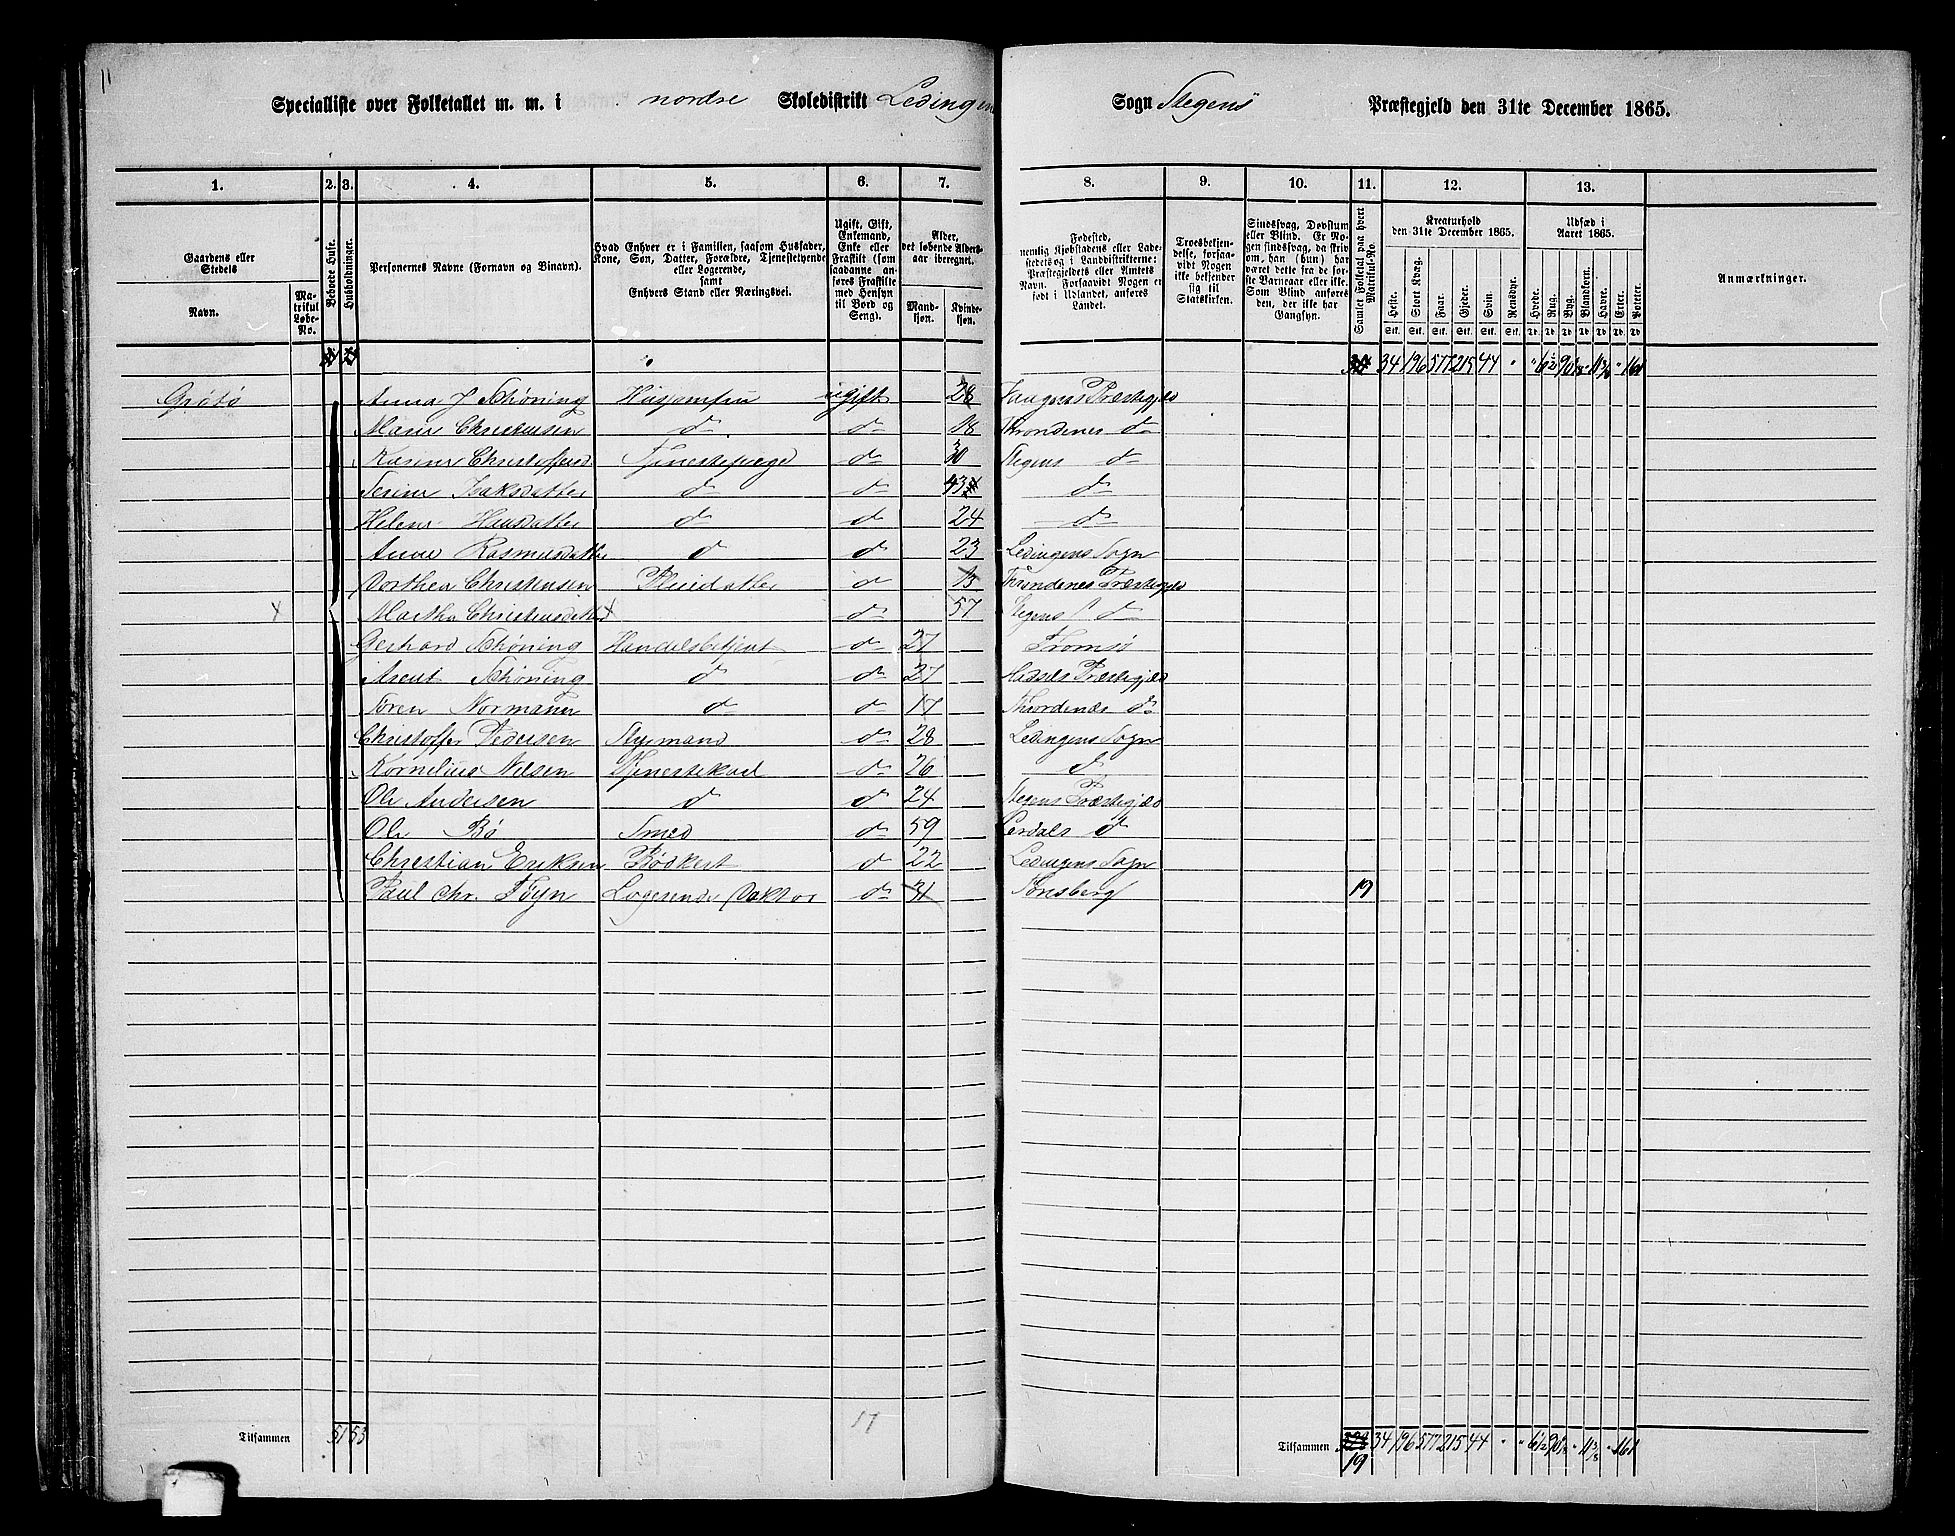 11
Specialliste over Folketallet m. m. i nordre Skoledistrikt Ledingen Sogn Stegens Præstegjeld den 31te December 1865.
1. 2. 3. 4. 5. 6. 7. 8. 9. 10. 11. 12. 13.
Gaardens eller Stedets
Navn.
Matrikul Løbe-No.
Beboede Huse.
Husholdninger.
Personernes Navne (Fornavn og Binavn).
Hvad Enhver er i Familien, saasom Husfader, Kone, Søn, Datter, Forældre, Tjenestetyende eller Logerende, samt Enhvers Stand eller Næringsvei.
Ugift, Gift, Enkemand, Enke eller Fraskilt (som saadanne anføres Fraskilte med Hensyn til Bord og Seng).
Alder, det løbende Aldersaar iberegnet.
Mandkjøn. Kvindekjøn.
Fødested, nemlig Kjøbstadens eller Ladestedets og i Landdistrikterne: Præstegjeldets eller Amtets Navn. Forsaavidt Nogen er født i Udlandet, anføres Landet.
Troesbekjendelse, forsaavidt Nogen ikke bekjender sig til Statskirken.
Sindssvag, Døvstum eller Blind. Er Nogen sindssvag, da skriv om, han (hun) har været dette fra de første Barneaar eller ikke. Som Blind anføres den, der ikke har Gangsyn.
Samlet Folketal paa hvert Matrikul-No.
Kreaturhold den 31te December 1865.
Heste. Stort Kvæg. Faar. Gjeder. Svin. Rensdyr.
Udsæd i Aaret 1865.
Hvede. Rug. Byg. Blandkorn. Havre. Erter. Poteter.
Anmærkninger.
34 196 577 215 44 " "
Grøtø Anna J Schøning Husjomfru ugift 28 Præstegjeld
Marie Christensen do do 18 Throndenes do
Christoffersd. Tjenestepige do 30 Stegens do
Isaksdatter do do 43 do
Helene Hansdatter do do 24 do
Anne Rasmusdatter do do 23 Ledingens Sogn
Dorthea Christensen Pleiedatter do 13 Throndenes Præstegjeld
x Martha Christensdatter x do 57 Stegens do
Gerhard Schøning Handelsbetjent do 27 Tromsø
Arent Schøning do do 27 Hadsels Præstegjeld
Søren Normann do do 17 Throndenæs do
Christoffer Pedersen Styrmand do 28 Ledingens Sogn
Kornelius Nilsen Tjenestekarl do 26 do
Ole Andersen do do 24 Stegens Præstegjeld
Ole Bø Smed do 59 Lerdals do
Christian Eriksen Bødkert do 22 Ledingens Sogn
Paul Chr. Føyn Logerende Doktor do 31 Tønsberg 19
17
Tilsammen 51 53
Tilsammen 34 196 577 215 44 " "
19